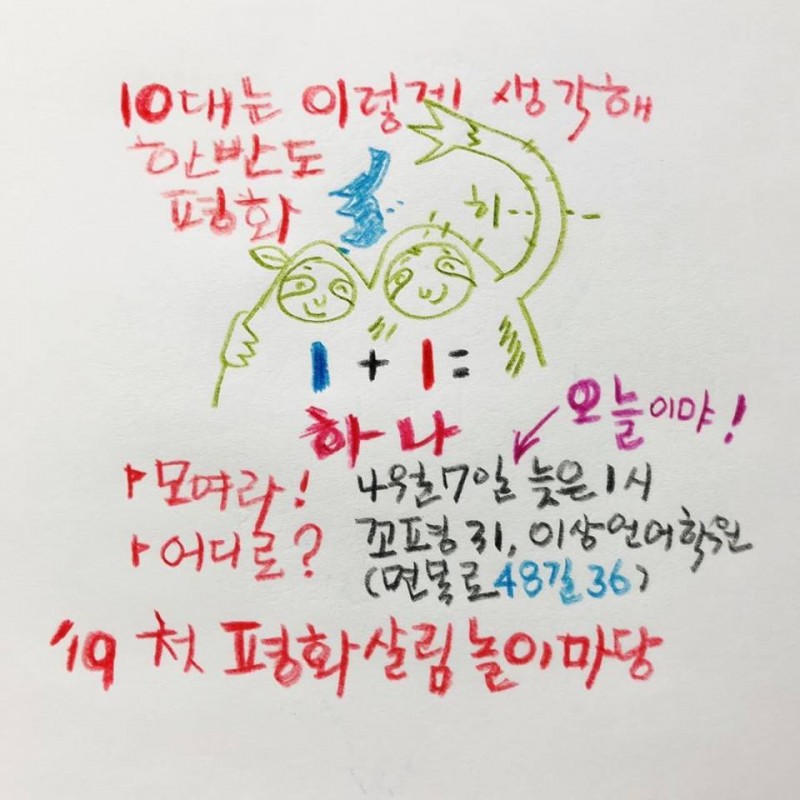 10대는 이렇게 생각해
한반도
평화
히
1 + 1 =
하나
오늘이야!
▶모여라! 4월7일 늦은1시
▶어디로? 꼬평화, 이상언어학원
(면목로48길36)
'19 첫 평화살림놀이마당